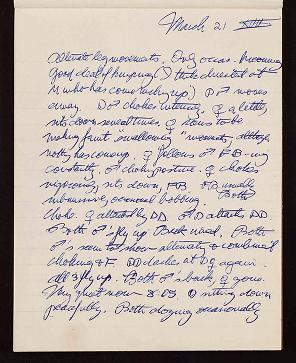 March 21 XIII
alternate leg movements. Only occas.
good deal of hurrying
♂ who has come rushing up) D♂ moves
away. D♂ chokes intensely. ♀ a little,
sits down several times. ♀ seems to be
making faint "swallowing" movements, although
nothing has come up. ♀ follows ♂ FB-ing
constantly. ♂ choking posture. ♀ chokes
vigorously, sits down, FB. FB usually
submissive, occasional bobbing. Both
choke. ♀ attacked by DD. ♂D attacks DD.
Both ♂s fly up. Back again. Both
♂s seem to show alternate & combined
choking & F. DD dashes at D♀ again.
all 3 fly up. Both ♂s back, ♀ gone.
Very quiet now 8:03. D sitting down
peacefully. Both dozing occasionally